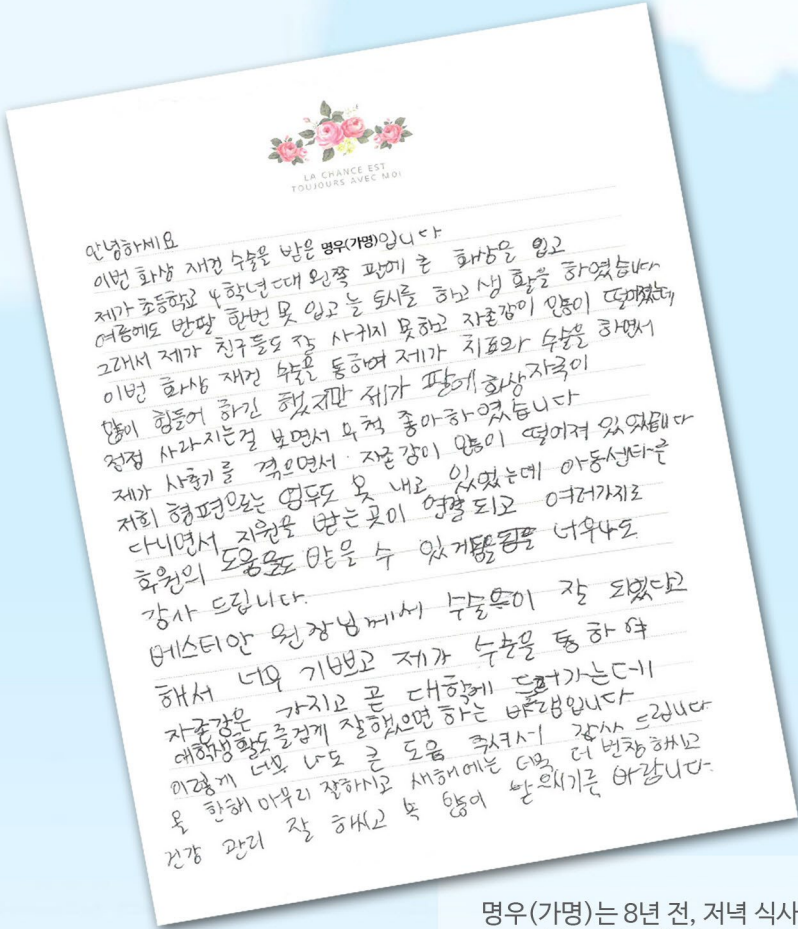 LA CHANCE EST
TOUJOURS AVEC MOI
안녕하세요
이번 화상 재건 수술을 받은 명우(가명)입니다
제가 초등학교 4학년때 왼쪽 팔에 큰 화상을 입고
여름에도 반팔 한번 못 입고 늘 토시를 하고 생활을 하였습니다
그래서 제가 친구들도 잘 사귀지 못하고 자존감이 많이 떨어졌는데
이번 화상 재건 수술을 통하여 제가 치료와 수술을 하면서
많이 힘들어 하긴 했지만 제가 팔에 화상자국이
점점 사라지는걸 보면서 무척 좋아하였습니다
제가 사춘기를 겪으면서 자존감이 많이 떨어져 있었습니다
저희 형편으로는 엄두도 못 내고 있었는데 아동센터를
다니면서 지원을 받는곳이 연결되고 여러가지로
후원의 도움을 받을 수 있게 됨을 너무나도
감사 드립니다.
베스티안 원장님께서 수술이 잘 되었다고
해서 너무 기쁘고 제가 수술을 통하여
자존감을 가지고 곧 대학에 들어가는데
대학생활도 즐겁게 잘했으면 하는 바램입니다.
이렇게 너무 나도 큰 도움 주셔서 감사 드립니다
올 한해 마무리 잘하시고 새해에는 더욱 더 번창하시고
건강 관리 잘 하시고 복 많이 받으시기를 바랍니다.
명우(가명)는 8년 전, 저녁 식사